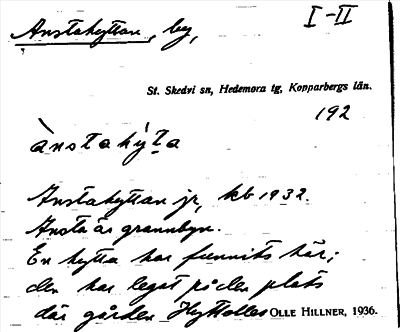 Anstahyttan, by, I-II
St. Skedvi sn, Hedemora tg, Kopparbergs län.
192
ànstahý̀ta
Anstahyttan jr, kb 1932.
Ansta är grannbyn.
En hytta har funnits här;
den har legat på den plats
där gården Hyttolles OLLE HILLNER, 1936.